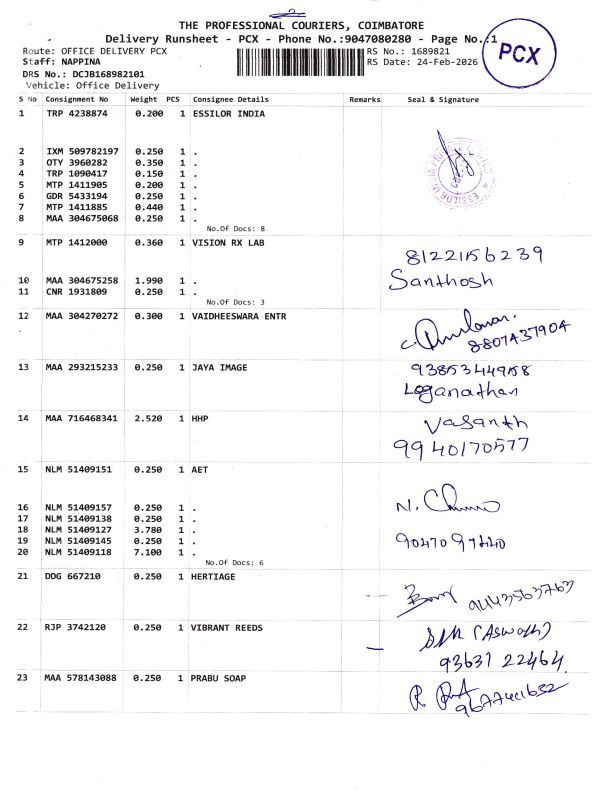 2
THE PROFESSIONAL COURIERS, COIMBATORE
Delivery Runsheet - PCX - Phone No.:9047080280 - Page No.:1
Route: OFFICE DELIVERY PCX RS No.: 1689821
Staff: NAPPINA RS Date: 24-Feb-2026
DRS No.: DCJB168982101
Vehicle: Office Delivery
PCX
S No Consignment No Weight PCS Consignee Details Remarks Seal & Signature
1 TRP 4238874 0.200 1 ESSILOR INDIA
2 IXM 509782197 0.250 1 .
3 OTY 3960282 0.350 1 .
4 TRP 1090417 0.150 1 .
5 MTP 1411905 0.200 1 .
6 GDR 5433194 0.250 1 .
7 MTP 1411885 0.440 1 .
8 MAA 304675068 0.250 1 .
No.Of Docs: 8
9 MTP 1412000 0.360 1 VISION RX LAB
8122156239
10 MAA 304675258 1.990 1 . Santhosh
11 CNR 1931809 0.250 1 .
No.Of Docs: 3
12 MAA 304270272 0.300 1 VAIDHEESWARA ENTR
8807437904
13 MAA 293215233 0.250 1 JAYA IMAGE 9385344958
Loganathan
14 MAA 716468341 2.520 1 HHP Vasanth
9940170577
15 NLM 51409151 0.250 1 AET
16 NLM 51409157 0.250 1 .
17 NLM 51409138 0.250 1 .
18 NLM 51409127 3.780 1 .
19 NLM 51409145 0.250 1 .
20 NLM 51409118 7.100 1 .
No.Of Docs: 6
21 DDG 667210 0.250 1 HERTIAGE
22 RJP 3742120 0.250 1 VIBRANT REEDS (Aswath)
93631 22464
23 MAA 578143088 0.250 1 PRABU SOAP